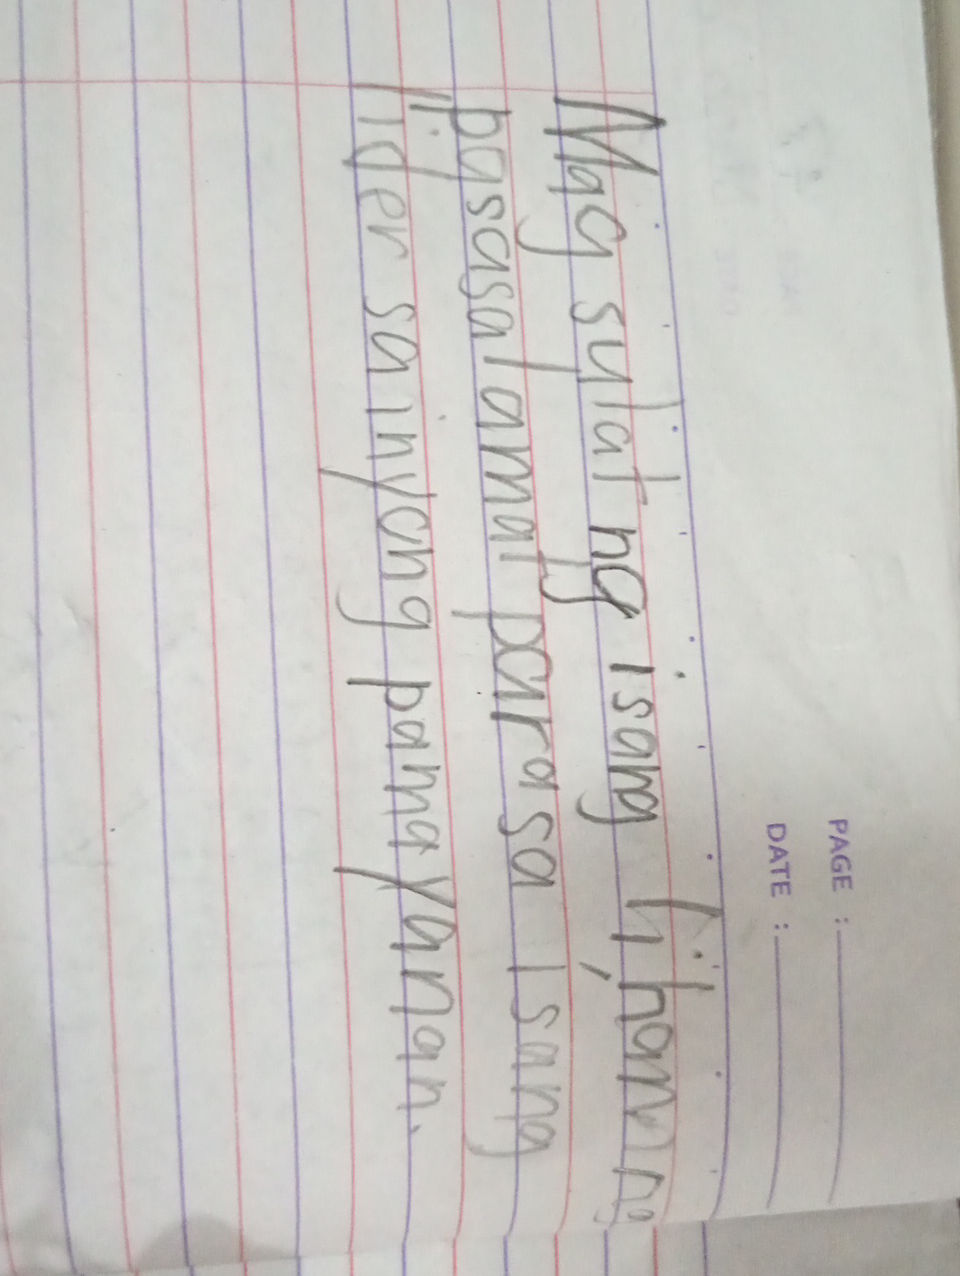 PAGE :
DATE :
Mag sulat ng isang liham ng
pasasalamat para sa isang
lider sa inyong pamayanan.